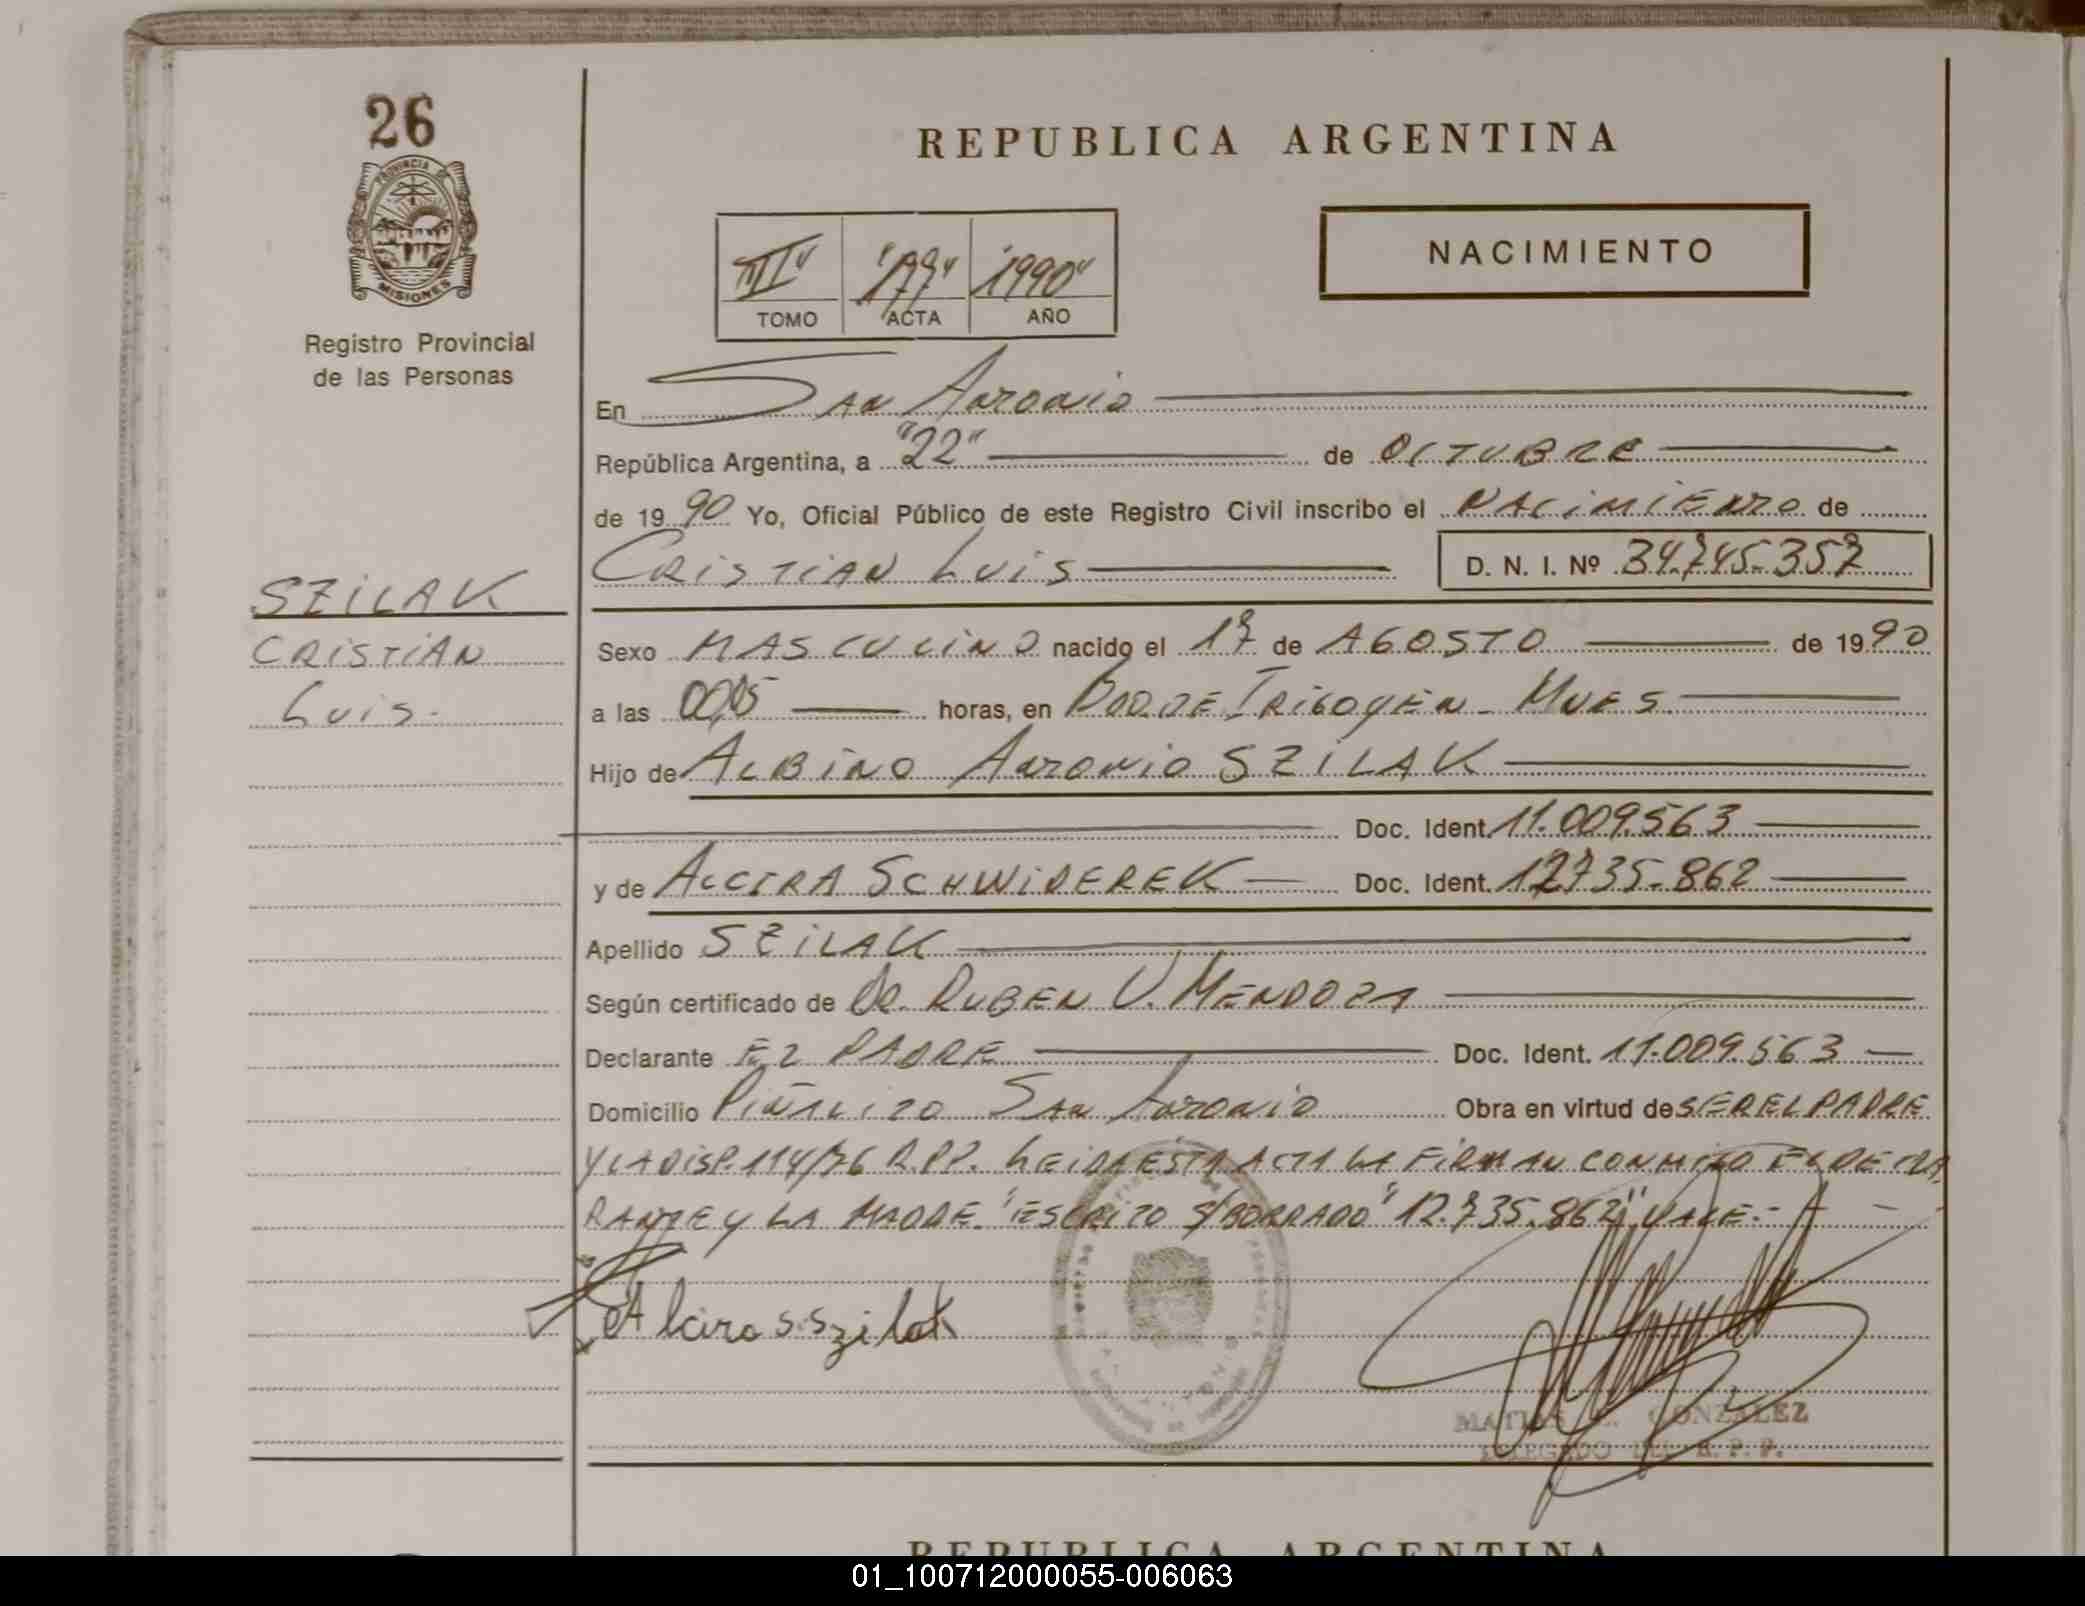 26
PROVINCIA DE
MISIONES
Registro Provincial
de las Personas
REPUBLICA ARGENTINA
NACIMIENTO
"III" "177" "1990"
TOMO ACTA AÑO
En San Antonio
República Argentina, a "22" de OCTUBRE
de 1990 Yo, Oficial Público de este Registro Civil inscribo el NACIMIENTO de
CRISTIAN LUIS D. N. I. Nº 34.745.357
SZILAK
CRISTIAN
Luis.
Sexo MASCULINO nacido el 17 de AGOSTO de 1990
a las 00,15 horas, en BDO. DE IRIGOYEN - MNES
Hijo de ALBINO ANTONIO SZILAK
Doc. Ident. 11.009.563
y de ALCIRA SCHWIDEREK Doc. Ident. 12.735.862
Apellido SZILAK
Según certificado de DR. RUBEN V. MENDOZA
Declarante EL PADRE Doc. Ident. 11.009.563
Domicilio PIÑALITO SAN ANTONIO Obra en virtud de SER EL PADRE
Y LA DISP. 114/76 R.P.P. LEIDA ESTA ACTA LA FIRMAN CONMIGO EL DECLA
RANTE Y LA MADRE. "ESCRITO S/BORRADO" "12.735.862" VALE.-
Alcira S. Szilak
MATIAS GONZALEZ
DELEGADO DEL R. P. P.
REPUBLICA ARGENTINA
01_100712000055-006063